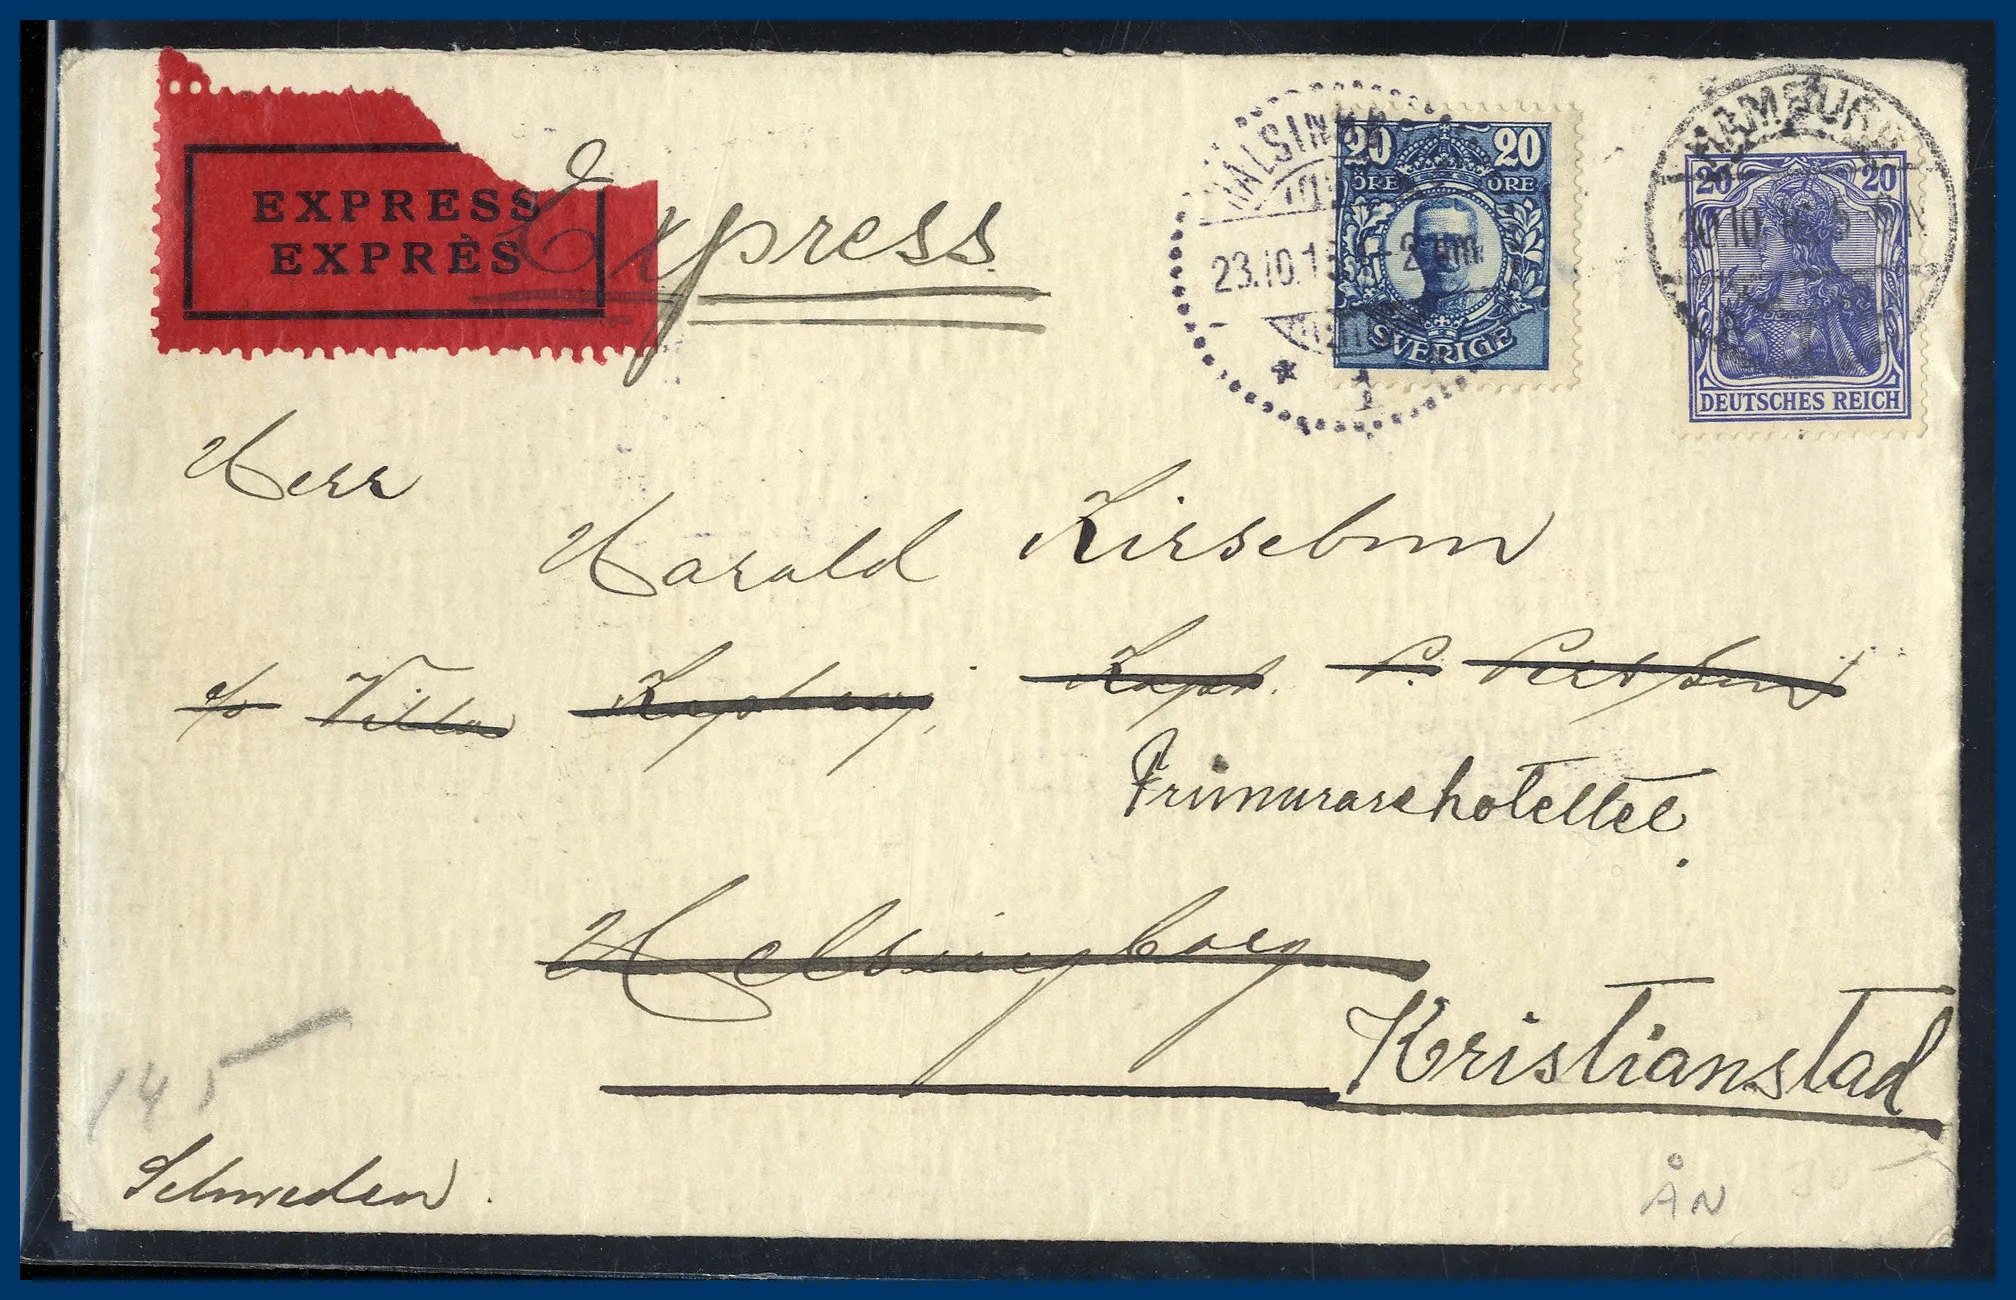 EXPRESS
EXPRÈS
Express
HÄLSING
23.10.15
1
20 20
ÖRE ÖRE
SVERIGE
HAMBURG
20 20
DEUTSCHES REICH
Herr
Harald Kirsebom
c/o Villa Kopberg, Kapt. P.
Frimurarehotellet.
Helsingborg
Kristianstad
145
Schweden.
ÅN